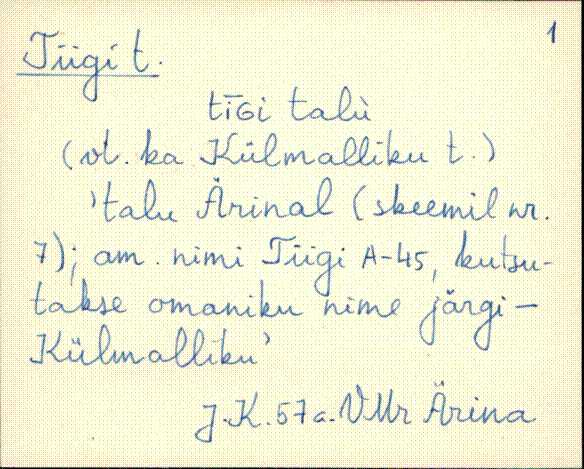 1
Tiigi t.
tīGi talù
(vt. ka Külmalliku t.)
'talu Ärinal (skeemil nr.
7); am. nimi Tiigi A-45, kutsu-
takse omaniku nime järgi –
Külmalliku'
J.K. 57a. VMr Ärina